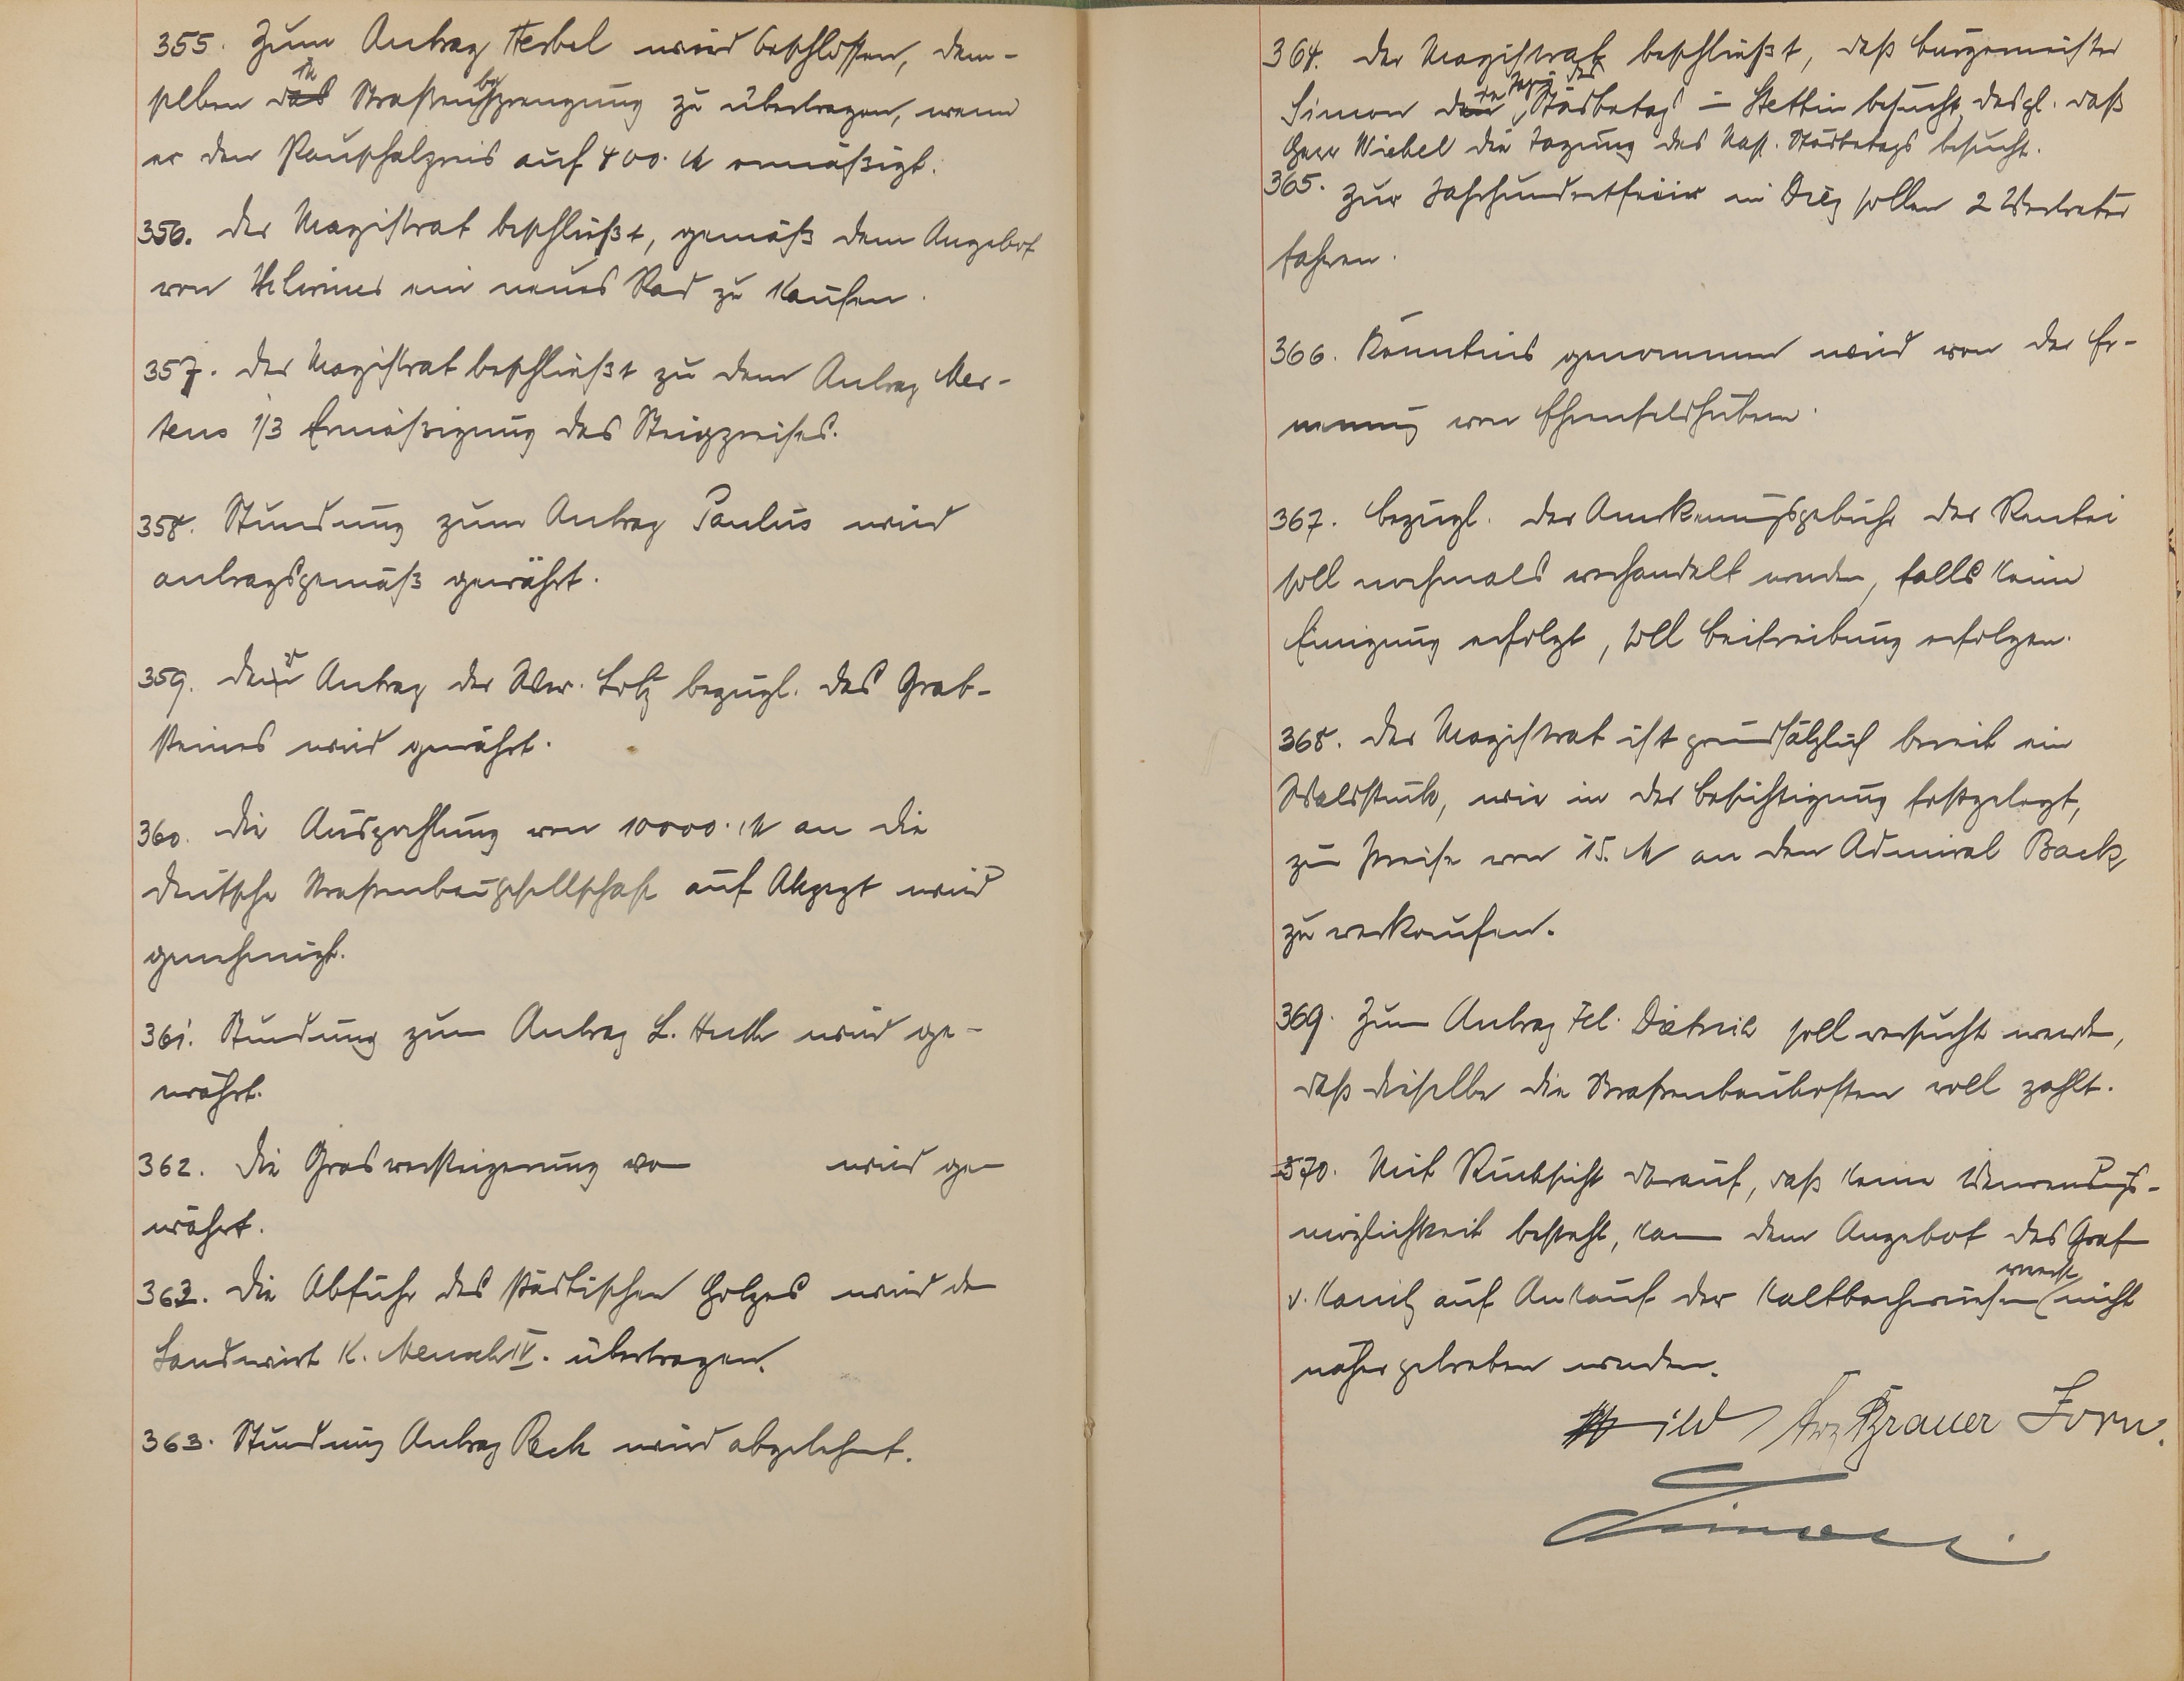 355. Zum Antrag Herbel wird beschlossen, dem-
selben die Straßenbesprengung zu übertragen, wenn
er den Pauschalpreis auf 400. M ermäßigt.
356. Der Magistrat beschließt, gemäß dem Angebot
von ein neues Rad zu kaufen.
357. Der Magistrat beschließt zu dem Antrag Mer-
tens 1/3 Ermäßigung des Steigpreises.
358. Stundung zum Antrag Paulus wird
antragsgemäß gewährt.
359. Der Antrag der Wwe. Lotz bezügl. des Grab-
steines wird gewährt.
360. Die Auszahlung von 10000. M an die
Deutsche Straßenbaugesellschaft auf Akzept wird
genehmigt.
361. Stundung zum Antrag L. Huth wird ge-
währt.
362. Die Grasversteigerung vom wird ge-
währt.
362. Die Abfuhr des städtischen Holzes wird dem
Landwirt K. IV. übertragen.
363. Stundung Antrag Beck wird abgelehnt.
364. Der Magistrat beschließt, daß Bürgermeister
Simon die Tagung des Städtetags in Stettin besucht, desgl. daß
Herr Wiebel die Tagung des Nass. Städtetags besucht.
365. Zur Jahrhundertfeier in Diez sollen 2 Vertreter
fahren.
366. Kenntnis genommen wird von der Er-
nennung von Ehrenfeldhütern.
367. Bezügl. der Anerkennungsgebühr der Rentei
soll nochmals verhandelt werden, falls keine
Einigung erfolgt, soll Beitreibung erfolgen.
368. Der Magistrat ist grundsätzlich bereit ein
Waldstück, wie in der Besichtigung festgelegt,
zum Preise von 15. M an den Admiral Back
zu verkaufen.
369. Zum Antrag Frl. Dietrich soll versucht werden,
daß dieselbe die Straßenbaukosten voll zahlt.
370. Mit Rücksicht darauf, daß keine Verwendungs-
möglichkeit besteht, kann dem Angebot des Graf
v. Kanitz auf Ankauf der Kaltbachwiesen nicht
näher getreten werden.
Wild Krauer Zorn.
Simon